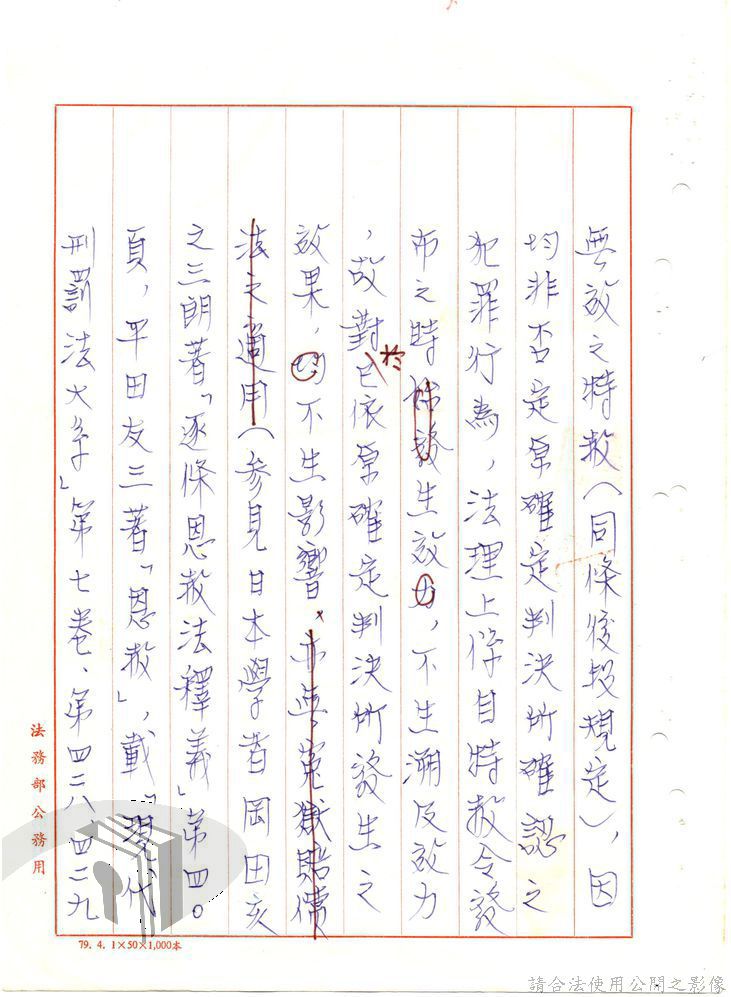 無效之特赦（同條後段規定），因
均非否定原確定判決所確認之
犯罪行為，法理上係自特赦令發
布之時始發生效力，不生溯及效力
，故對於已依原確定判決所發生之
效果，均不生影響，亦無冤獄賠償
法之適用（參見日本學者岡田亥
之三朗著「逐條恩赦法釋義」第四○
頁，平田友三著「恩赦」，載「現代
刑罰法大系」第七卷、第四二八、四二九
法務部公務用
79. 4. 1×50×1,000本
請合法使用公開之影像